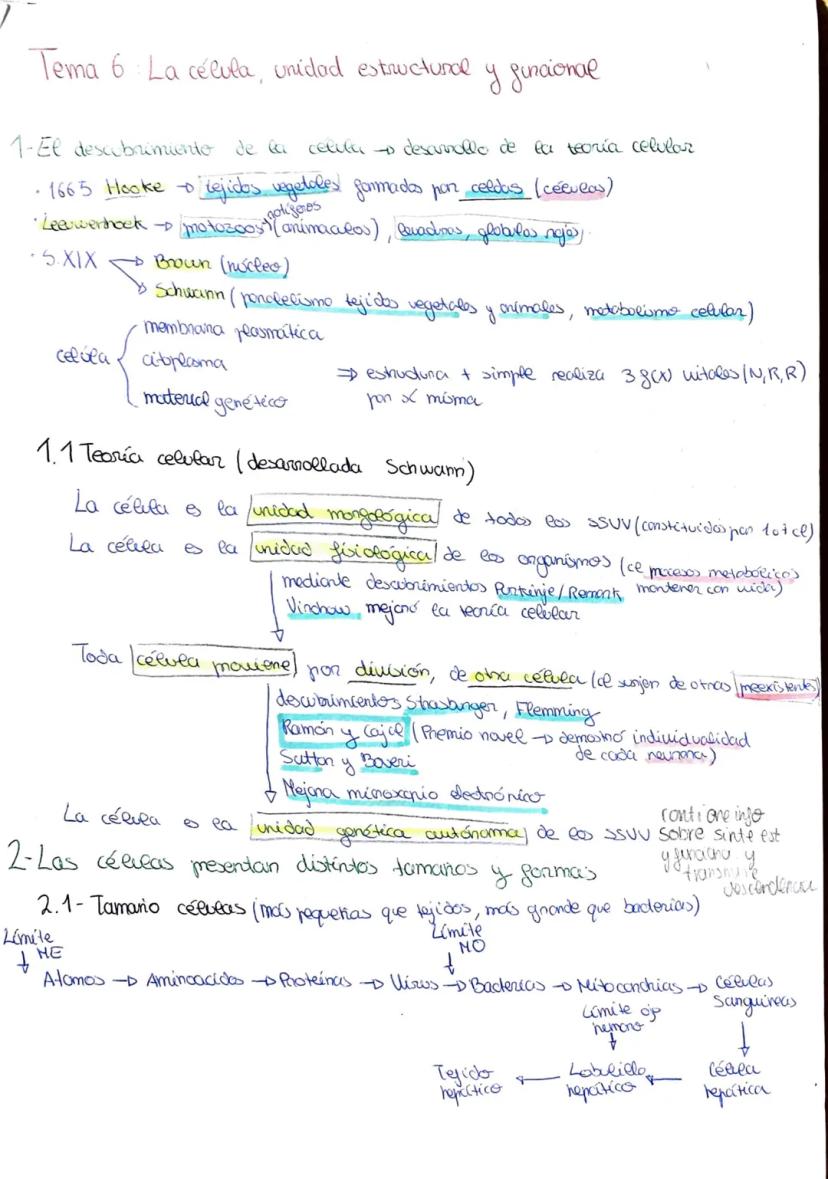 Tema 6: La célula, unidad estructural y funcional
1-El descubrimiento de la celula → desarrollo de la teoría celular
· 1665 Hooke → tejidos vegetales formados por celdas (células)
· Leewerhoek → protozoos (animaculos), levaduras, globulos rojos.
· S.XIX → Brown (núcleo)
→ Schwann (paralelismo tejidos vegetales y animales, metabolismo celular)
membrana plasmática
celúla { citoplasma ⇒ estructura + simple realiza 3 f(x) vitales (N,R,R)
material genético por x misma
1.1 Teoría celular (desarrollada Schwann)
La célula es la unidad morfológica de todos los SSUV (constituidos por 1 o + cel)
La célula es la unidad fisiológica de los organismos (cel procesos metabólicos
mediante descubrimientos Purkinje/Remark mantener con vida)
Virchow mejoró la teoría celular
Toda célula proviene por división, de otra célula (cel surjen de otras preexistentes)
descubrimientos Strasburger, Flemming
Ramón y Cajal (Premio novel → demostró individualidad
de cada neurona)
Sutton y Boveri
Mejora microscopio electrónico
La célula es la unidad genética autónoma de los SSUV contiene info
sobre sinte est
y funcino y
transmite
descendencia
2-Las células presentan distintos tamaños y formas
2.1- Tamaño células (más pequeñas que tejidos, más grande que bacterias)
Límite
ME
Límite
MO
Atomos → Aminoacidos → Proteínas → Virus → Bacterias → Mitocondrias → Células
Sanguineas
Límite ojo
humano
Tejido
hepático ← Lobulillo
hepático ← Célula
hepática